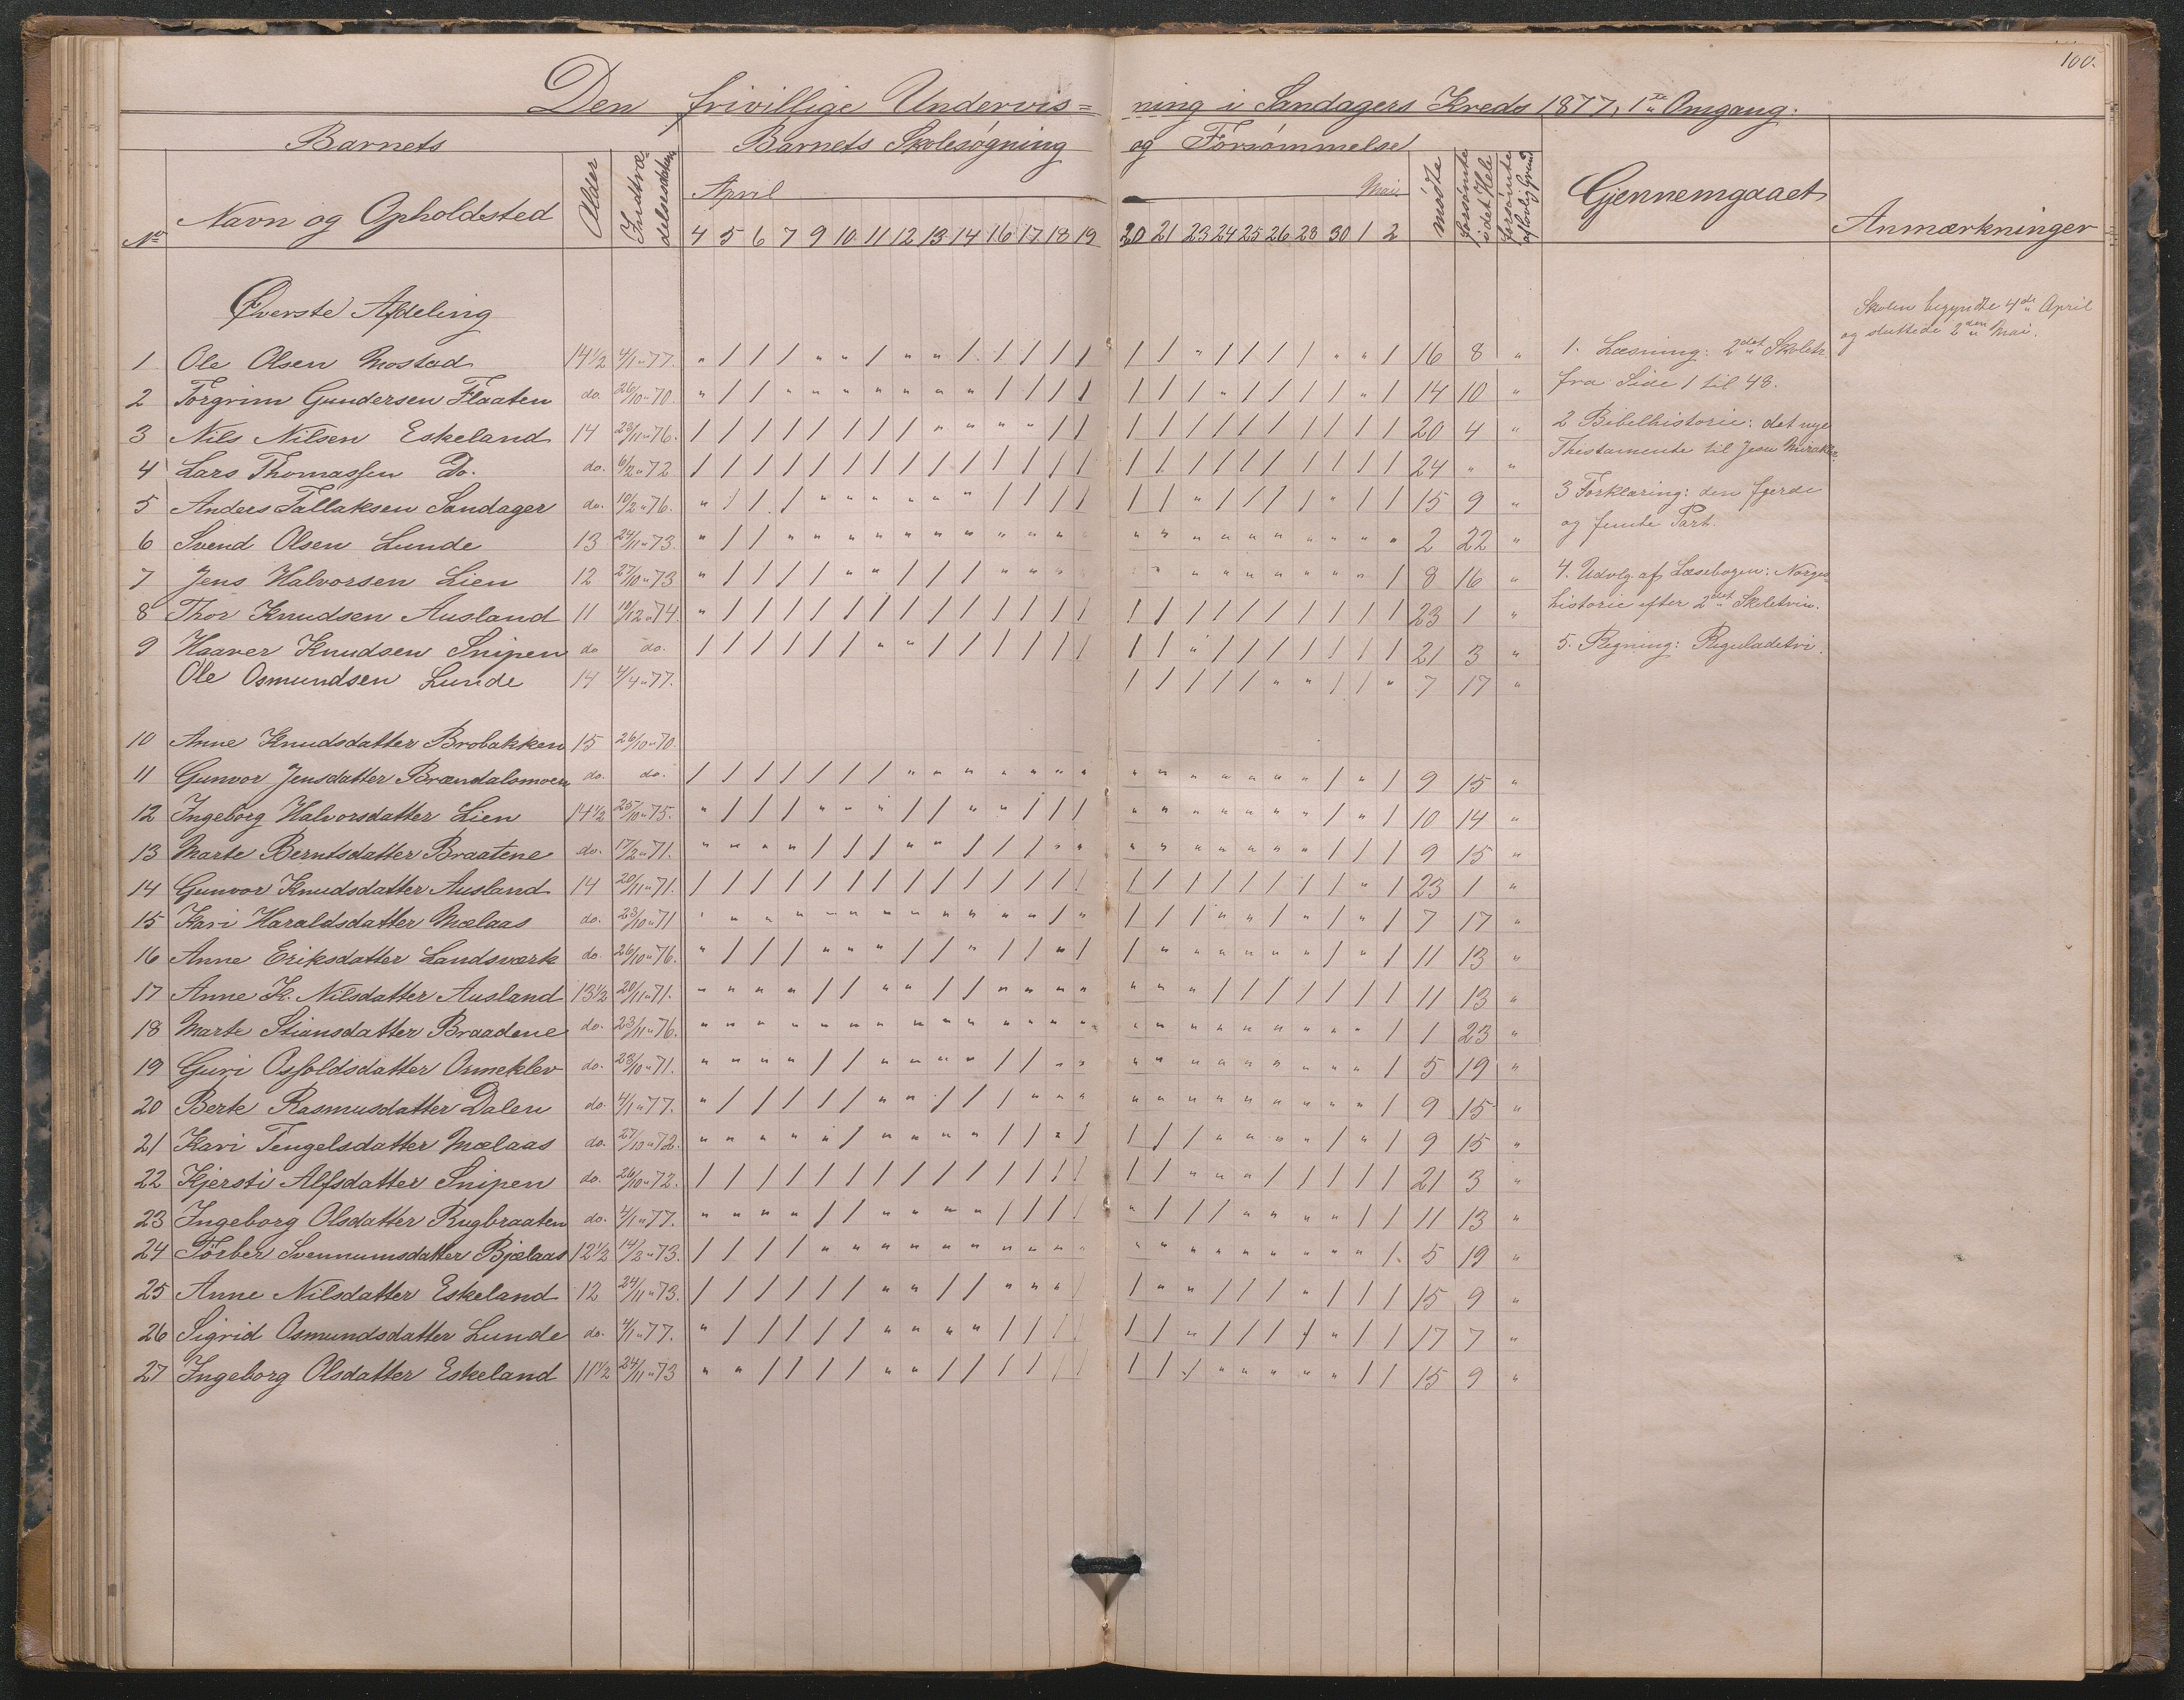 100.
Den frivillige Undervis= ning i Sandagers Kreds 1877, 1ste Omgang.
Barnets Barnets Skolesøgning og Forsømmelse
No Navn og Opholdsted Alder Indtrædelsesdatum April Mai mødte forsømte i det Hele forsømte af lovlig Grund Gjennemgaaet Anmærkninger
4 5 6 7 9 10 11 12 13 14 16 17 18 19 20 21 23 24 25 26 28 30 1 2
Øverste Afdeling
1 Ole Olsen Mostad 14½ 4/1 " 77. " / / / " " / " " / / / / / / / " / / / / " " / 16 8 "
2 Torgrim Gundersen Flaaten do. 26/10 " 70. " / / " " " " " " " / / / / / / / " / / / / " / 14 10 "
3 Nils Nilsen Eskeland 14 23/11 " 76. / / / / / / / / " " " " / / / / / / / / / / / / 20 4 "
4 Lars Thomassen Do. do. 6/2 " 72 / / / / / / / / / / / / / / / / / / / / / / / / 24 " "
5 Anders Tallaksen Sandager do. 10/2 " 76. " / / / " " " " " " / / / / / / " / / / / " / / 15 9 "
6 Svend Olsen Lunde 13 24/11 " 73. " / / " " " " " " " " " " " " " " " " " " " " " 2 22 "
7 Jens Halvorsen Lien 12 27/10 " 73 " / / / / " " / / / " " " " " " " " " " " " " / 8 16 "
8 Thor Knudsen Ausland 11 10/12 " 74. " / / / / / / / / / / / / / / / / / / / / / / / 23 1 "
9 Haaver Knudsen Snipen do do. / / / / / / " " / / / / / / / / " / / / / / / / 21 3 "
Ole Osmundsen Lunde 14 4/4 " 77. / / / / / " " / / " 7 17 "
10 Anne Knudsdatter Brobakken 15 26/10 " 70.
11 Gunvor Jensdatter Brændalsmoen do. do. / / / / / / / " " " " " " " " " " " " " " / " / 9 15 "
12 Ingeborg Halvorsdatter Lien 14½ 25/10 " 75. " / / / " " " / / " " / / / " " " " " " " / " / 10 14 "
13 Marte Berntsdatter Braatene do. 17/2 " 71. " " " " / / / " " / / / " " " " " " " " " / / / 9 15 "
14 Gunvor Knudsdatter Ausland 14 20/11 " 71. / / / / / / / / / / / / / / / / / / / / / / " / 23 1 "
15 Kari Haraldsdatter Mælaas do. 23/10 " 71 " " " " " " " " " " " " / " / / / " " / " / " / 7 17 "
16 Anne Eriksdatter Landsværk do. 26/10 " 76. " / / / " " " / / " / / " / / " " " " " " / " / 11 13 "
17 Anne K. Nilsdatter Ausland 13½ 20/11 " 71. " " " " / / " " / / " " " " " " " / / / / / / / 11 13 "
18 Marte Stiansdatter Braadene do. 23/11 " 76. " " " " " " " " " " " " " " " " " " " " " " " / 1 23 "
19 Guri Osfoldsdatter Ormeklev do. 23/10 " 71. " " " " / / " " " " / / " " " " " " " " " " " / 5 19 "
20 Berte Rasmusdatter Dalen do. 4/1 " 77. " / / / / / " " / / / " " " " " " " " " " " " / 9 15 "
21 Kari Tengelsdatter Mælaas do. 27/10 " 72. " " " " " / " " " " / / " / / / / " " " " / " / 9 15 "
22 Kjersti Alfsdatter Snipen do. 26/10 " 72. / / / / / / / / / / / / / / / / " " " / / / / / 21 3 "
23 Ingeborg Olsdatter Rugbraaten do. 4/1 " 77. " " " " / / " " " " / / / / " / / / " " " " / / 11 13 "
24 Torber Svennumsdatter Bjælaas 12½ 14/2 " 73. / / / / " " " " " " " " " " " " " " " " " " " / 5 19 "
25 Anne Nilsdatter Eskeland 12 24/11 " 73. / / / / / / " " / / " " " / / " " / / / " / / / 15 9 "
26 Sigrid Osmundsdatter Lunde do. 4/1 " 77. " / / / / / " " " " / / / / / / " / / / / " / / 17 7 "
27 Ingeborg Olsdatter Eskeland 11½ 24/11 " 73 " " / / / / " " / / / / / / / / / " " " " " / / 15 9 "
1. Læsning: 2det Skoletr.
fra Side 1 til 48.
2 Bibelhistorie: det nye
Thestamente til Jesu Mirakler.
3 Forklaring: den fjerde
og femte Part.
4. Udvlg. af Læsebogen: Norges
Historie efter 2det Skoletrin.
5. Regning: Reguladetri.
Skolen begyndte 4de April
og sluttede 2den Mai.